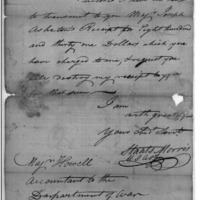 to transmit to you Majr. Joseph
Asheton's Receipt for Eight hundred
and thirty one Dollars which you
have charged to me, I request you
will destroy my receipt to you
for that sum
I am
with great
Yours
Staats Morris
Majr. Howell
Accountant to the
Department of War